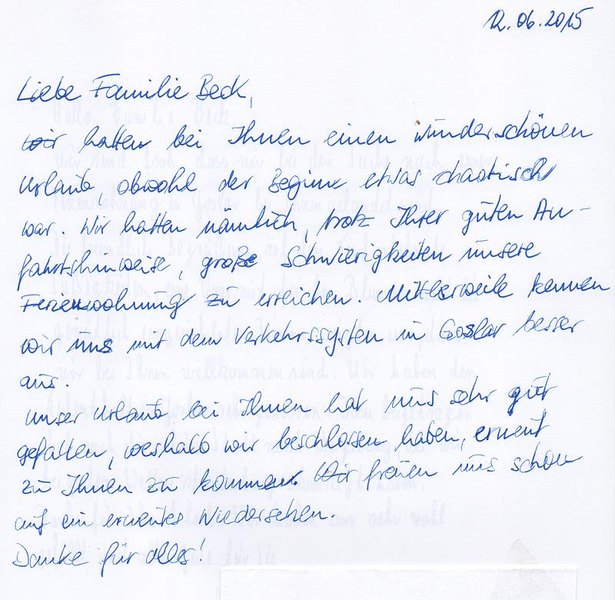 12.06.2015
Liebe Familie Beck,
wir hatten bei Ihnen einen wunderschönen
Urlaub, obwohl der Beginn etwas chaotisch
war. Wir hatten nämlich, trotz Ihrer guten An-
fahrtshinweise, große Schwierigkeiten unsere
Ferienwohnung zu erreichen. Mittlerweile kennen
wir uns mit dem Verkehrssystem in Goslar besser
aus.
Unser Urlaub bei Ihnen hat uns sehr gut
gefallen, weshalb wir beschlossen haben, erneut
zu Ihnen zu kommen. Wir freuen uns schon
auf ein erneutes Wiedersehen.
Danke für alles!